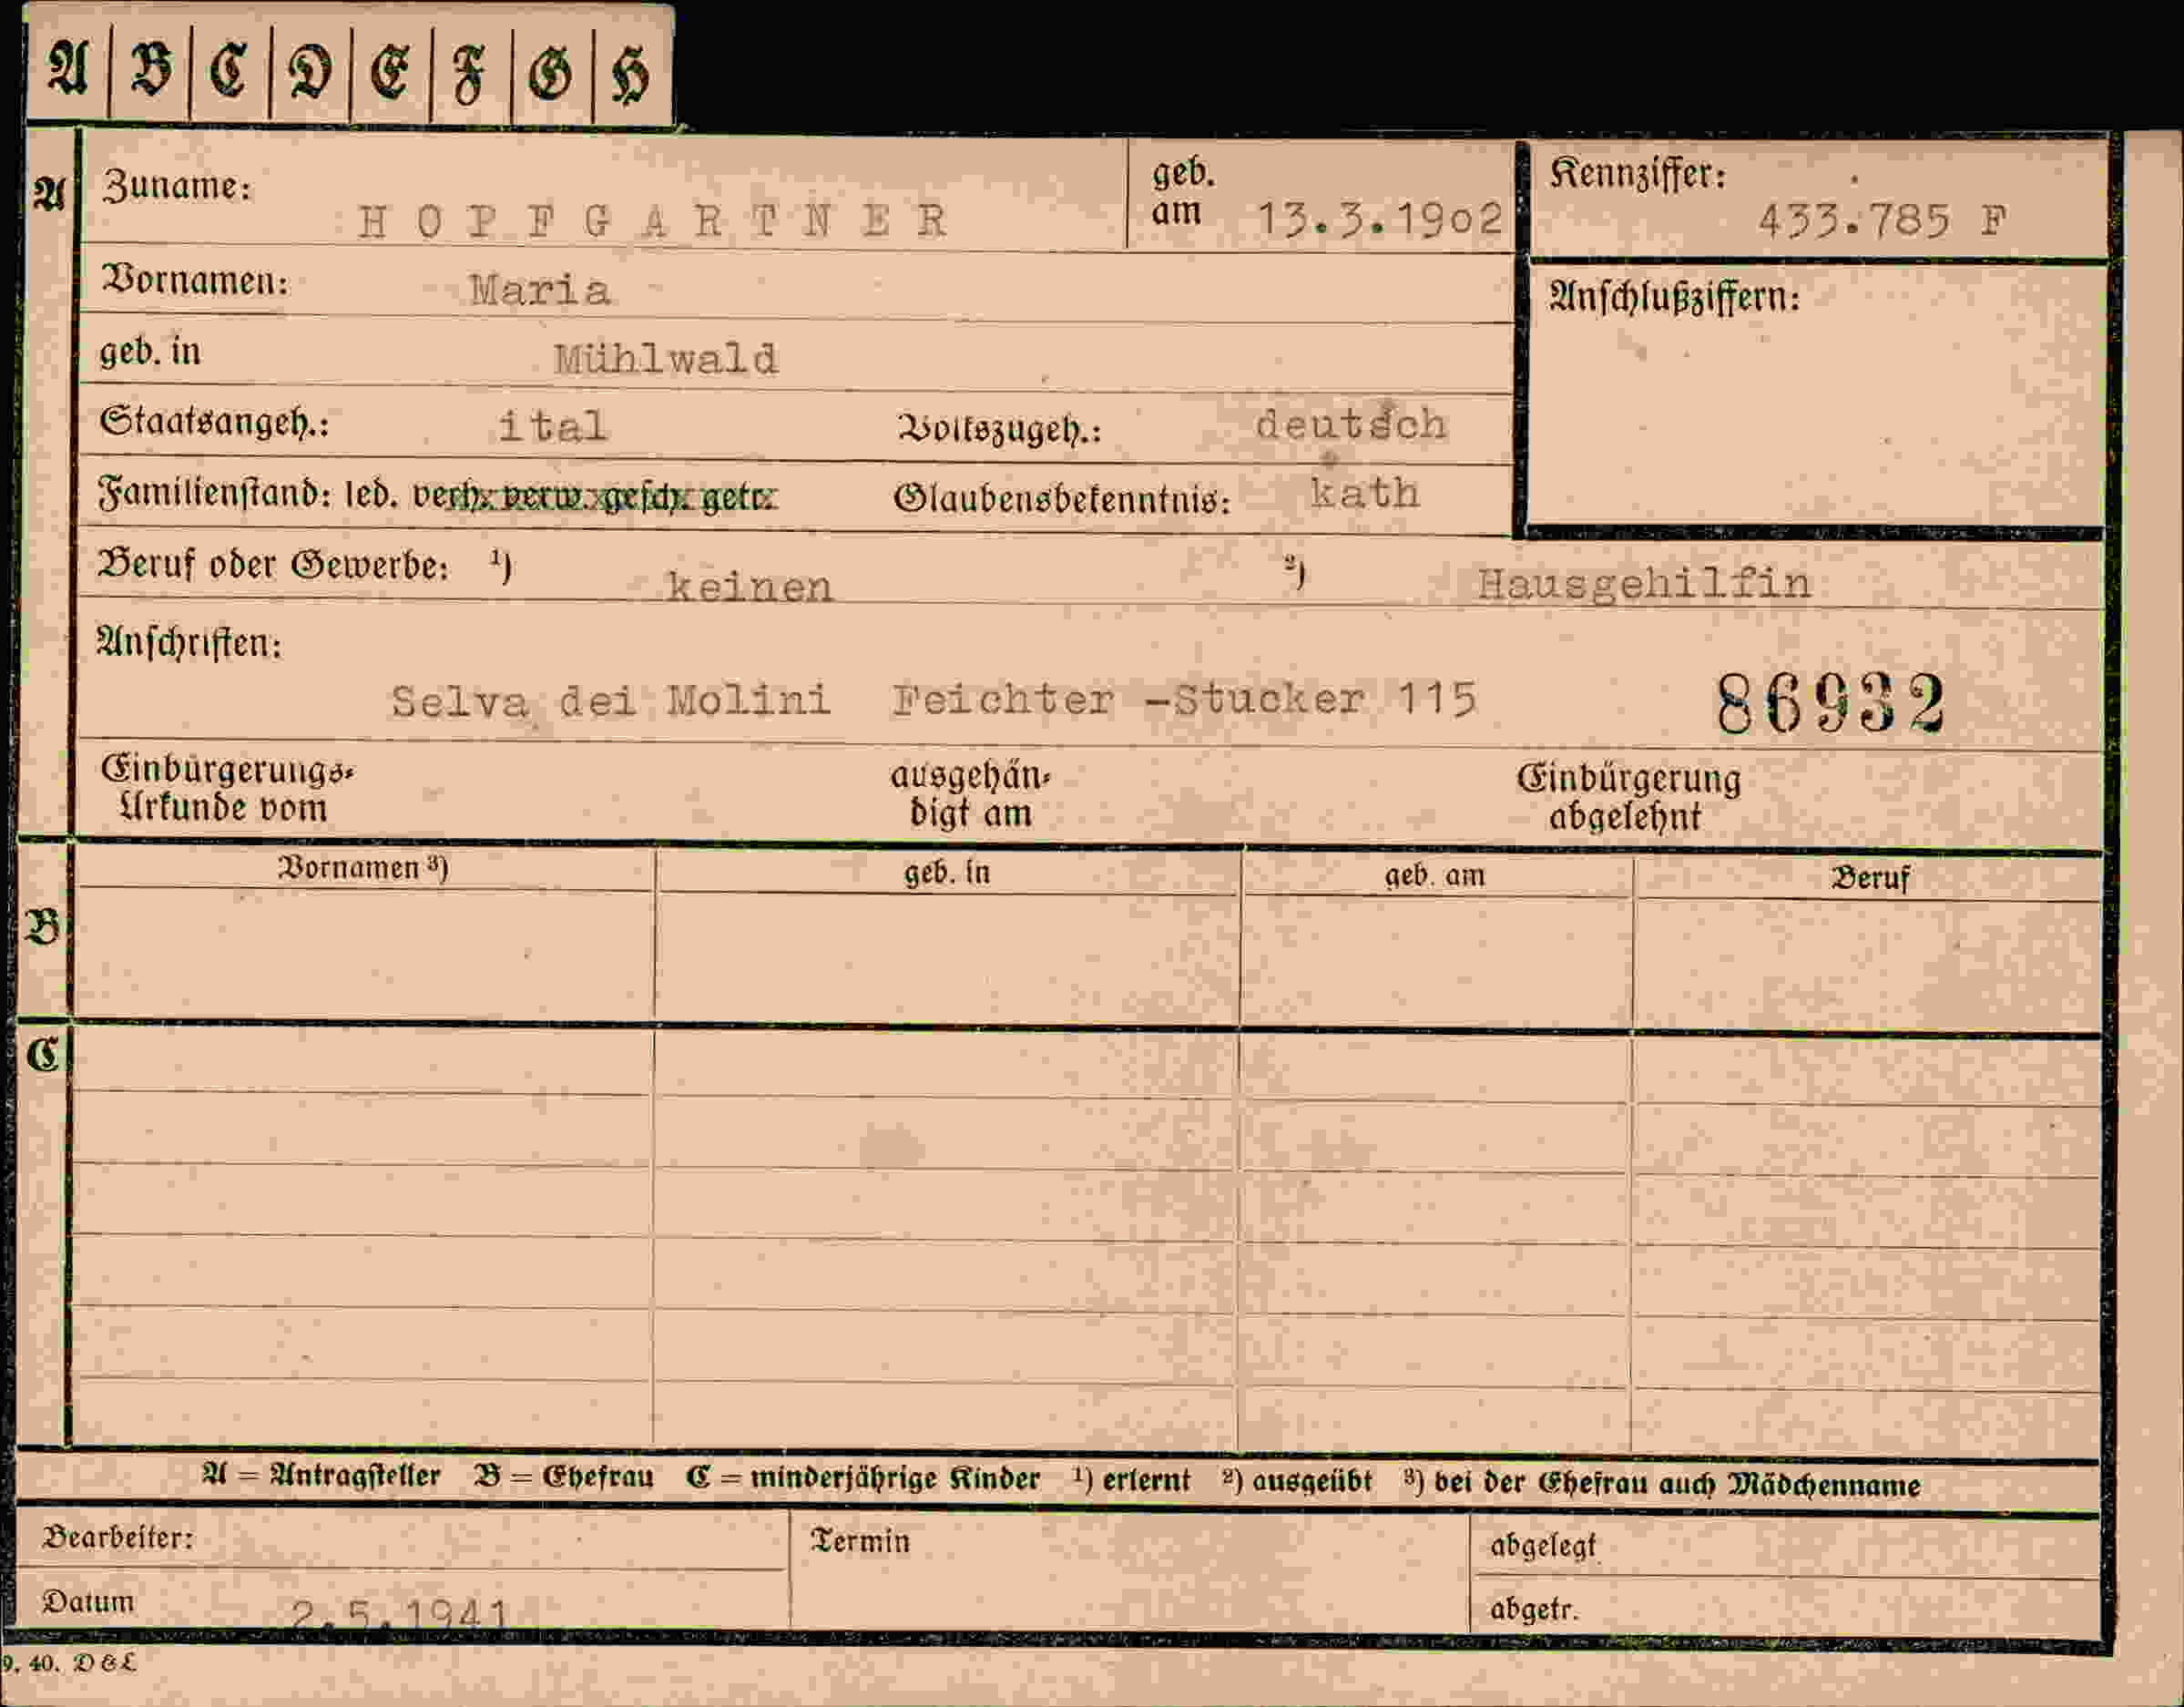 A B C D E F G H
A Zuname: HOPFGARTNER geb. am 13.3.19o2 Kennziffer: 433.785 F
Vornamen: Maria Anschlußziffern:
geb. in Mühlwald
Staatsangeh.: ital Volkszugeh.: deutsch
Familienstand: led. verh. verw. gesch. getr. Glaubensbekenntnis: kath
Beruf oder Gewerbe: ¹) keinen ²) Hausgehilfin
Anschriften:
Selva dei Molini Feichter -Stucker 115 86932
Einbürgerungs-Urkunde vom ausgehän-digt am Einbürgerung abgelehnt
Vornamen ³) geb. in geb. am Beruf
B
C
A = Antragsteller B = Ehefrau C = minderjährige Kinder ¹) erlernt ²) ausgeübt ³) bei der Ehefrau auch Mädchenname
Bearbeiter: Termin abgelegt
Datum 2.5.1941 abgetr.
9. 40. D & L